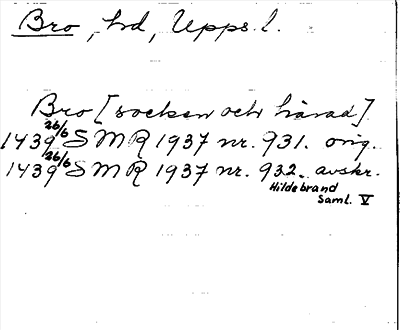 Bro, hd, Upps. l.
Bro [socken och härad]
1439 26/6 SMR 1937 nr. 931. orig.
1439 26/6 SMR 1937 nr. 932. avskr.
Hildebrand
Saml. V